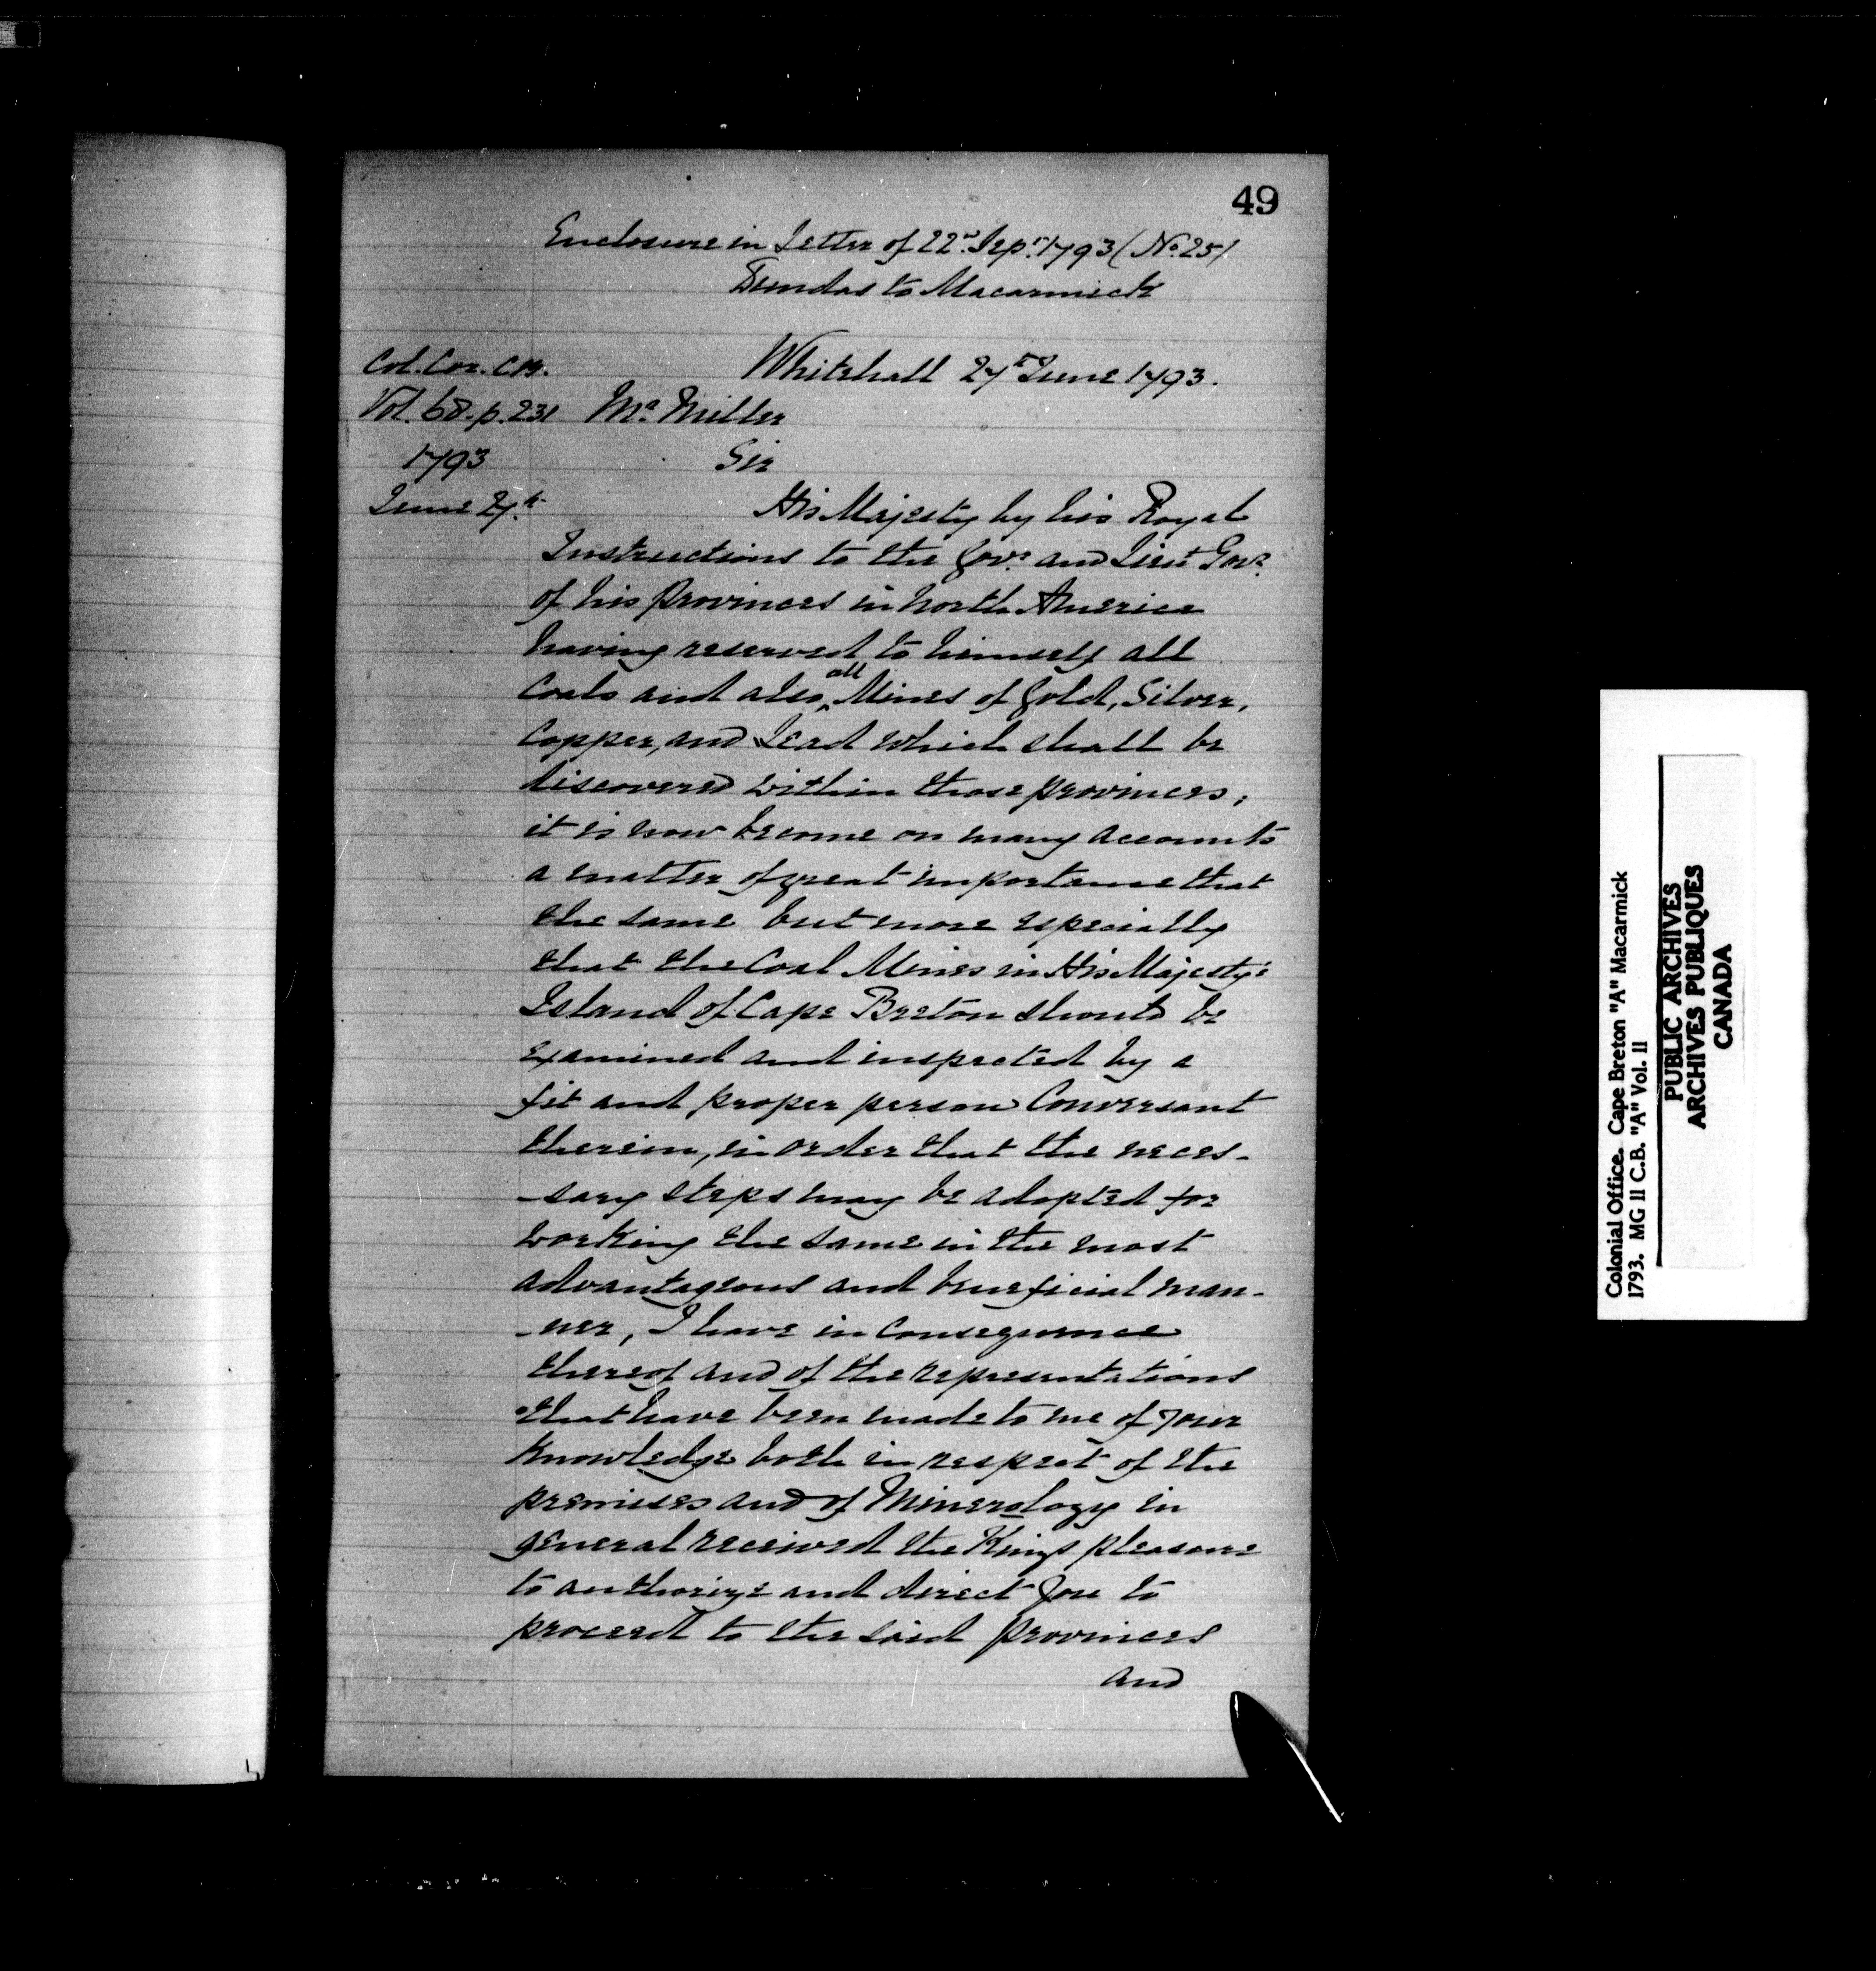 49
Enclosure in Letter of 22nd Sepr. 1793 (No. 25)
Dundas to Macarmick
Col. Cor. C.B.
Vol. 68. p. 231
1793
June 27th
Whitehall 27th June 1793.
Mr. Miller
Sir
His Majesty by his Royal
Instructions to the Govr. and Lieut Govr.
of his Provinces in North America
having reserved to himself all
Coals and also all Mines of Gold, Silver,
Copper, and Lead which shall be
discovered within those provinces;
it is now become on many accounts
a matter of great importance that
the same but more especially
that the Coal Mines in His Majesty's
Island of Cape Breton should be
examined and inspected by a
fit and proper person Conversant
therein, in order that the neces-
-sary steps may be adopted for
working the same in the most
advantageous and beneficial man-
-ner, I have in Consequence
thereof and of the representations
that have been made to me of your
Knowledge both in respect of the
premises and of Minerology in
general received the Kings pleasure
to authorize and direct you to
proceed to the said Provinces
and
Colonial Office. Cape Breton "A" Macarmick
1793. MG II C.B. "A" Vol. II
PUBLIC ARCHIVES
ARCHIVES PUBLIQUES
CANADA